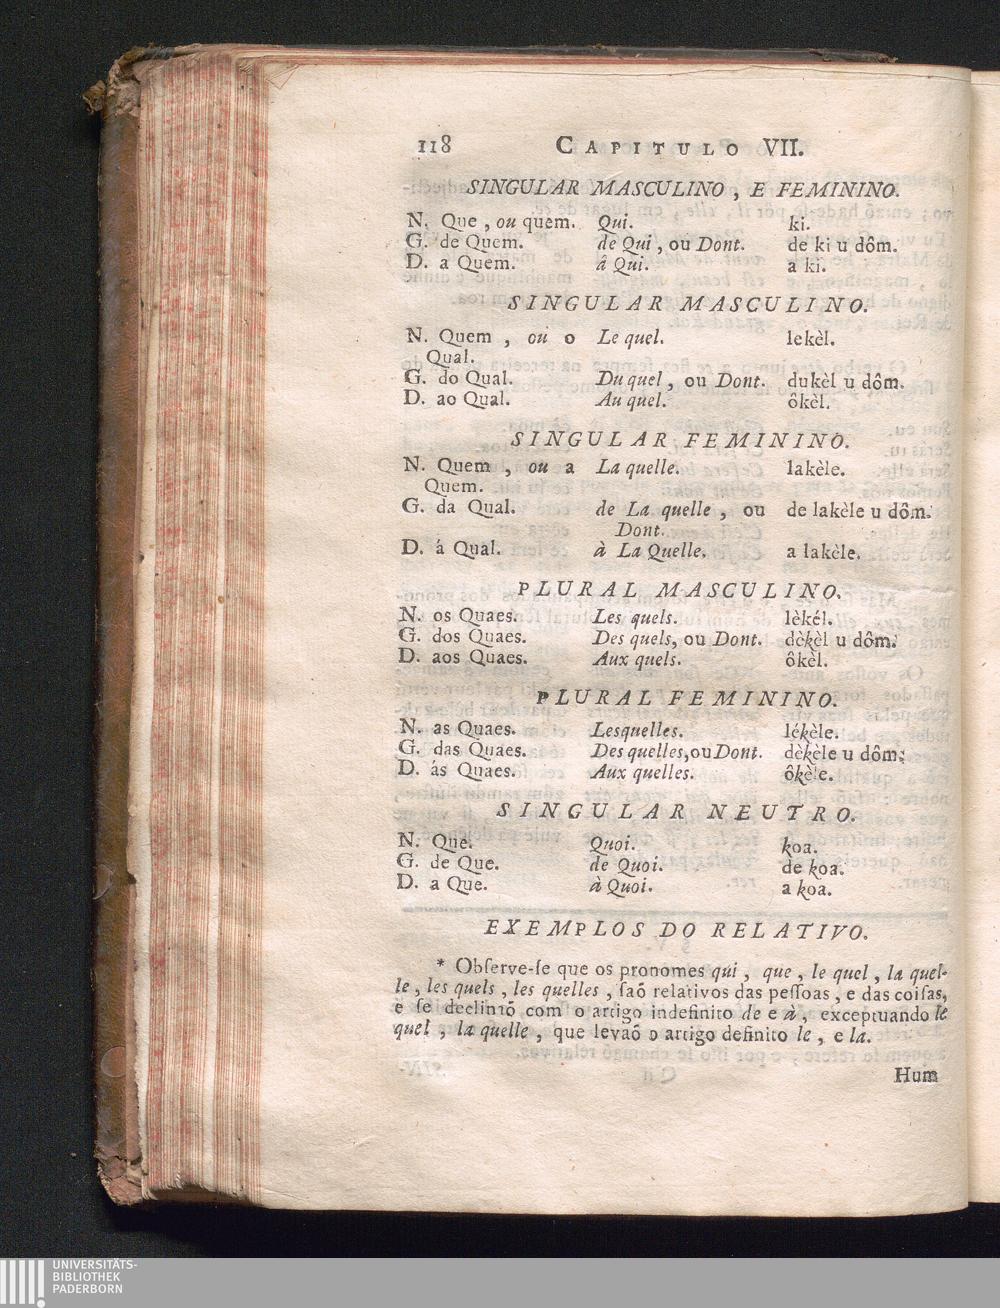 118 CAPITULO VII.
SINGULAR MASCULINO, E FEMININO.
N. Que, ou quem. Qui. ki.
G. de Quem. de Qui, ou Dont. de ki u dôm.
D. a Quem. â Qui. a ki.
SINGULAR MASCULINO.
N. Quem, ou o Le quel. lekèl.
Qual.
G. do Qual. Du quel, ou Dont. dukèl u dôm.
D. ao Qual. Au quel. ôkèl.
SINGULAR FEMININO.
N. Quem, ou a La quelle. lakèle.
Quem.
G. da Qual. de La quelle, ou de lakèle u dôm.
Dont.
D. á Qual. à La Quelle. a lakèle.
PLURAL MASCULINO.
N. os Quaes. Les quels. lèkél.
G. dos Quaes. Des quels, ou Dont. dèkèl u dôm.
D. aos Quaes. Aux quels. ôkèl.
PLURAL FEMININO.
N. as Quaes. Lesquelles. lékèle.
G. das Quaes. Des quelles, ou Dont. dèkèle u dôm.
D. ás Quaes. Aux quelles. ôkèle.
SINGULAR NEUTRO.
N. Que. Quoi. koa.
G. de Que. de Quoi. de koa.
D. a Que. à Quoi. a koa.
EXEMPLOS DO RELATIVO.
* Obſerve-ſe que os pronomes qui, que, le quel, la quel-
le, les quels, les quelles, ſaõ relativos das peſſoas, e das coiſas,
e ſe declinaõ com o artigo indefinito de e à, exceptuando le
quel, la quelle, que levaõ o artigo definito le, e la.
Hum
UNIVERSITÄTS-
BIBLIOTHEK
PADERBORN